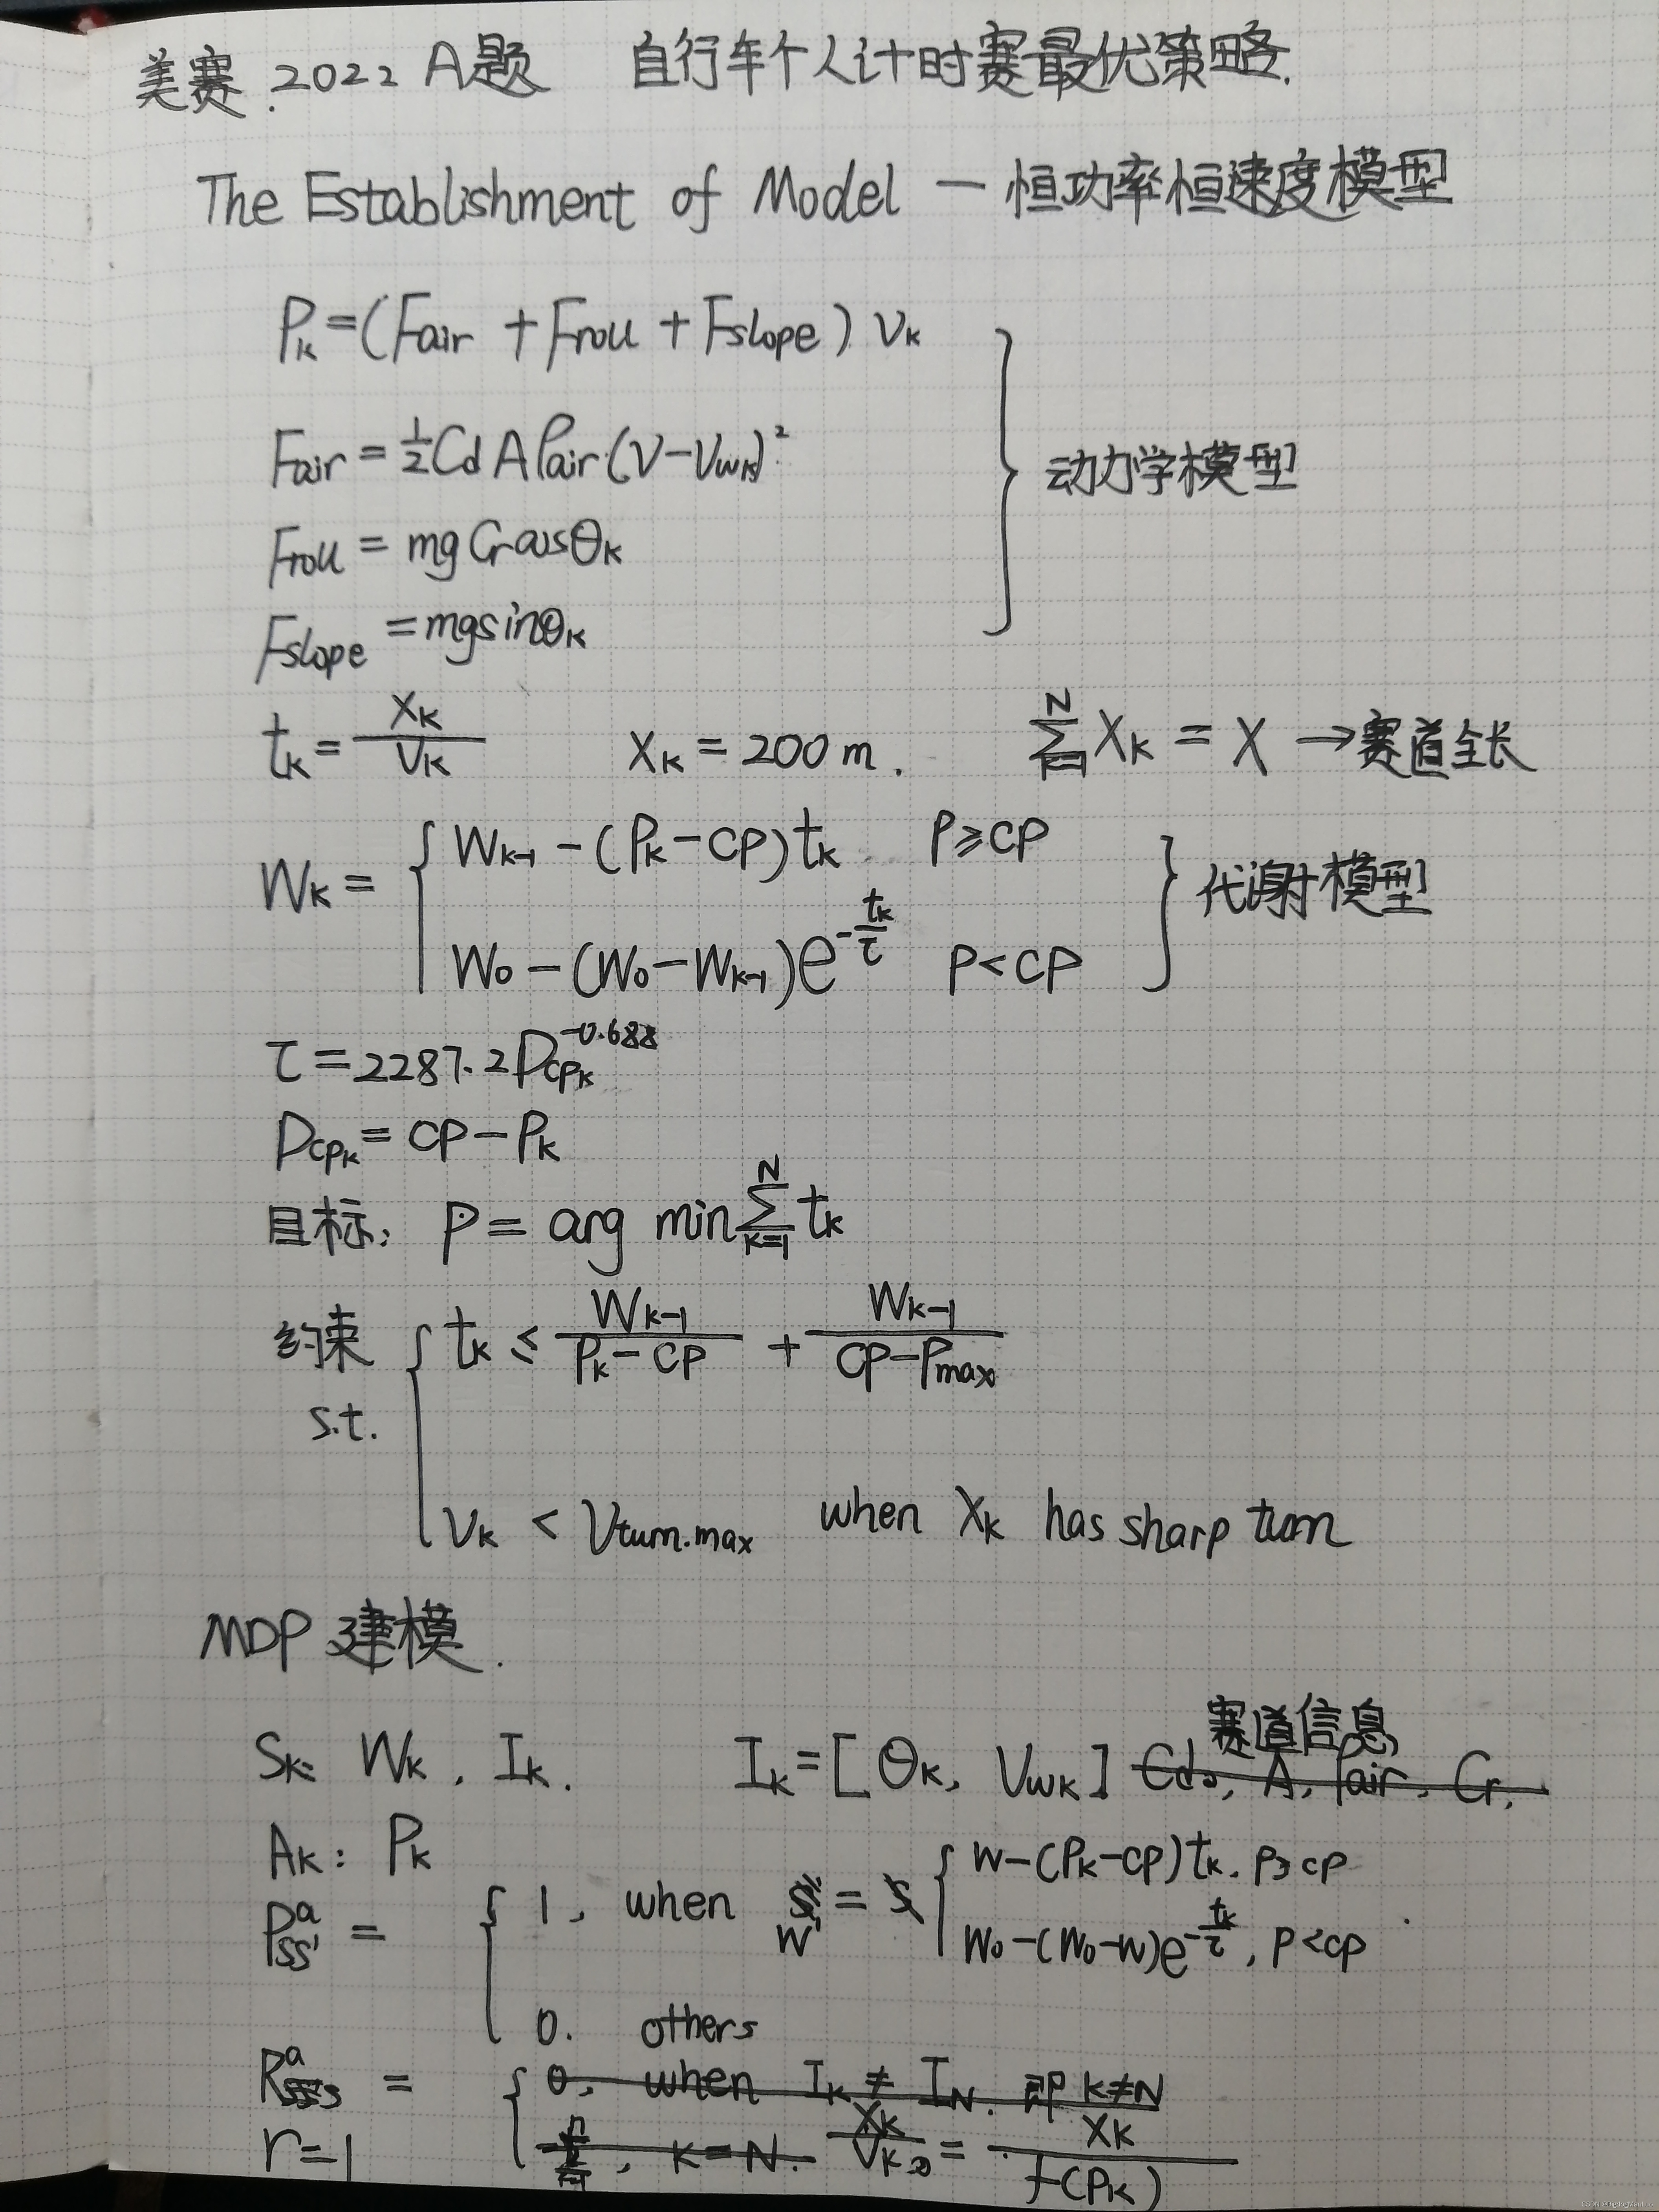 美赛.2022 A题 自行车个人计时赛最优策略.
The Establishment of Model — 恒功率恒速度模型
Pk=(Fair + Froll + Fslope) Vk
Fair = 1/2 Cd A ρair·(V-Vwk)²
动力学模型
Froll = mg Cr cosθk
Fslope = mgsinθk
tk = Xk/Vk Xk = 200 m. ∑(k=1→N) Xk = X → 赛道全长
Wk = { Wk-1 - (Pk - CP)tk P≥CP
W0 - (W0 - Wk-1)e^(-tk/τ) P<CP } 代谢模型
τ = 2287.2 Dcpk^(-0.688)
Dcpk = CP - Pk
目标: P = arg min ∑(k=1→N) tk
约束 s.t. { tk ≤ Wk-1/(Pk-CP) + Wk-1/(CP-Pmax)
Vk < Vturn.max when Xk has sharp turn
MDP 建模.
赛道信息
Sk: Wk, Ik. Ik = [θk, Vwk] Cd, A, ρair, Cr,
Ak: Pk
P^a_ss' = { 1, when W' = { W-(Pk-CP)tk, P≥CP
W0-(W0-W)e^(-tk/τ), P<CP
0. others
R^a = { 0, when Ik ≠ IN. 即 k≠N
r=1 , K=N. Xk/Vk = Xk/f(Pk)